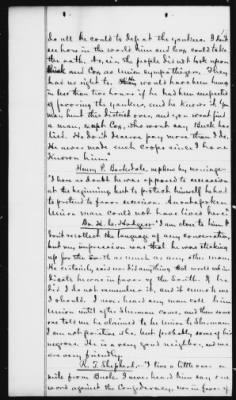 do all he could to defeat the yankees. I don't
see how in the world him and Cox could take
the oath. No, sir, the people did not look upon
and Cox as Union sympathizers. They
had no right to. would have been hung
in less than two hours if he had been suspected
of favoring the yankees, and he knows it. You
may hunt this district over, and you won't find
a man, except Cox, who won't say Buck has
lied. He do it I reckon
He never made such crops since I have
known him."
Henry P. nephew by marriage:
"I have no doubt he was opposed to secession
at the beginning, but to protect himself he had
to pretend to favor secession. An outspoken
Union man could not have lived here."
Dr. H. C. Hodges: "I am close to him. I
don't recollect the language of any conversation,
but my impression was that he was sticking
up for the South as much as any other man.
He certainly said nor did anything that would indicate
he was in favor of the South. If he
did I do not remember it, and it seems to me
I should. I never heard any man call him
Union until after Sherman came, and then some
one told me he claimed to be Union to
I am not positive who, but probably some of his
negroes. He is a very good neighbor, and we
are very friendly."
K. T. Shepherd: "I live a little over a
mile from Buck. I never heard him say one
word against the Confederacy, nor in favor of